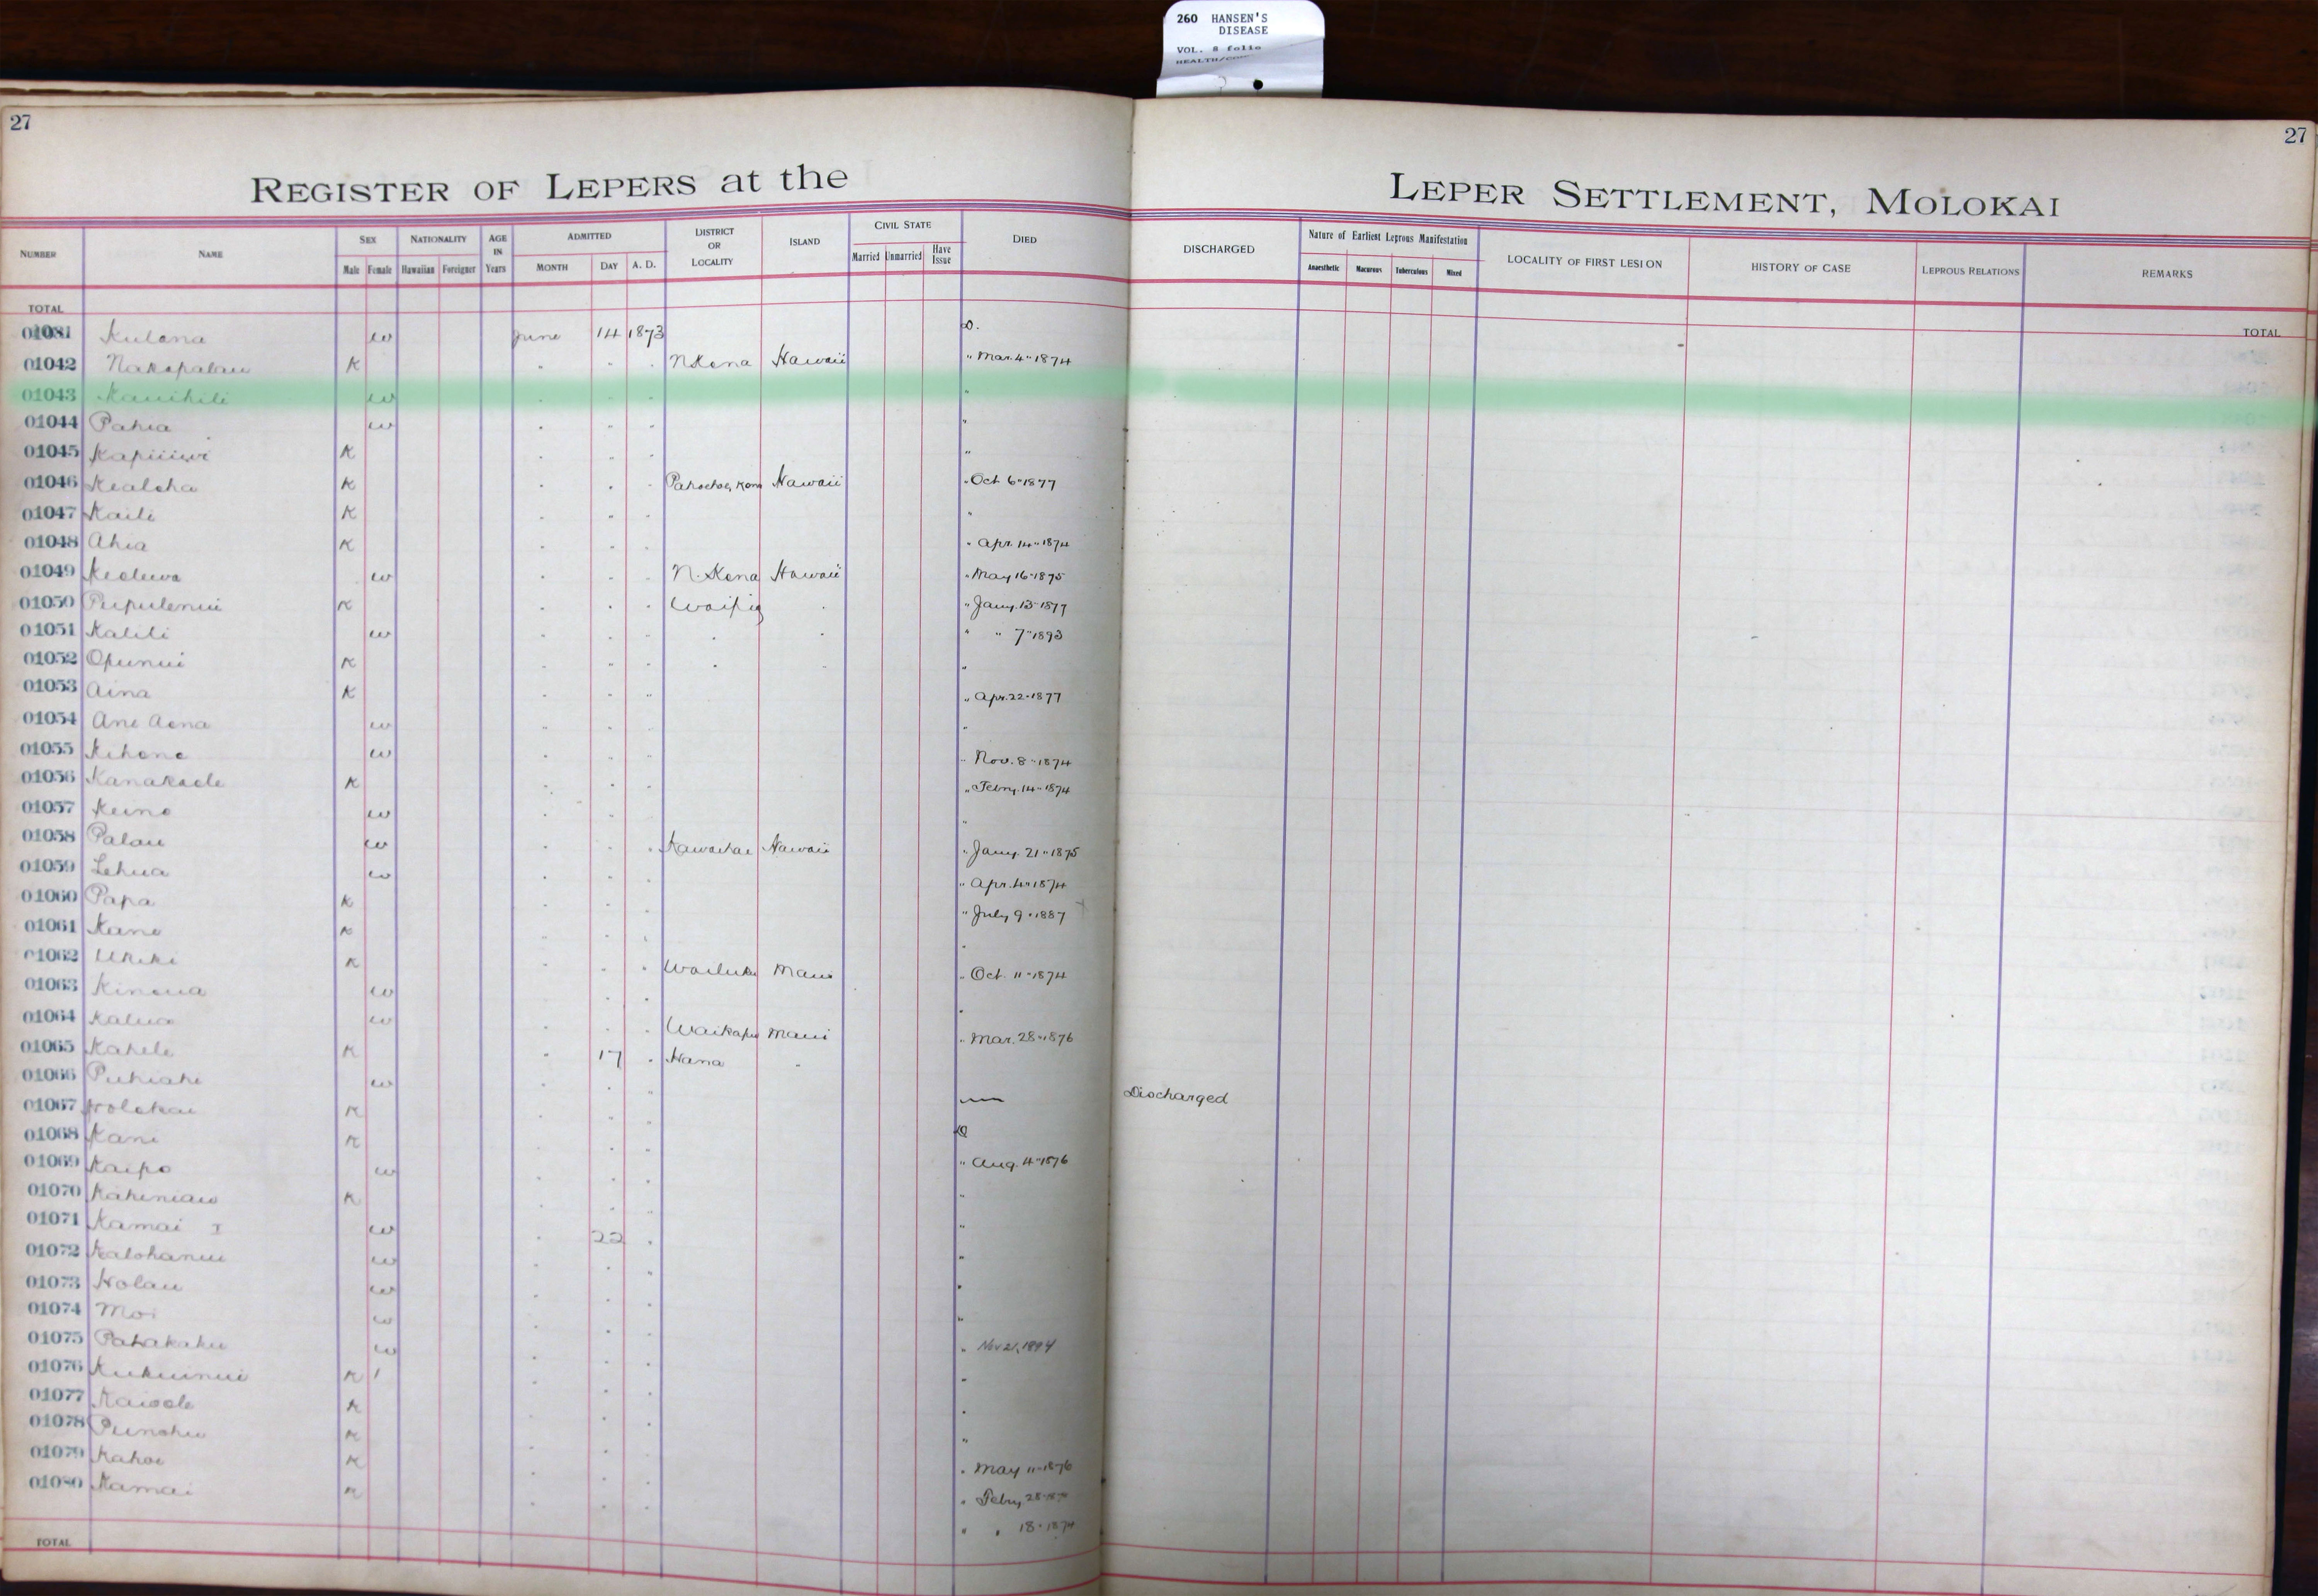 260 HANSEN'S
DISEASE
VOL. 8 folio
27
27
REGISTER OF LEPERS at the
LEPER SETTLEMENT, MOLOKAI
NUMBER NAME SEX NATIONALITY AGE IN Years ADMITTED DISTRICT OR LOCALITY ISLAND CIVIL STATE DIED DISCHARGED Nature of Earliest Leprous Manifestation LOCALITY OF FIRST LESION HISTORY OF CASE LEPROUS RELATIONS REMARKS
Male Female Hawaiian Foreigner MONTH DAY A. D. Married Unmarried Have Issue Anaesthetic Macurous Tuberculous Mixed
TOTAL TOTAL
Kulana w June 14 1873 D.
01042 Nakopalau K " " " N Kona Hawaii " Mar. 4 " 1874
01043 Kauihili w " " " "
01044 Pahia w " " " "
01045 K " " " "
01046 Kealoha K " " " Hawaii " Oct 6 " 1877
01047 Kaili K " " " "
01048 Ahia K " " " " Apr. 14 " 1874
01049 w " " " N. Kona Hawaii " May 16 " 1875
01050 Pupulenui K " " " Waipio " " Jany. 13 " 1877
01051 Kalili w " " " " " " " 7 " 1893
01052 Opunui K " " " " " "
01053 Aina K " " " " Apr. 22 " 1877
01054 Ane Aena w " " " "
01055 Kihene w " " " " Nov. 8 " 1874
01056 Kanakaole K " " " " Febry. 14 " 1874
01057 Keino w " " " "
01058 Palau w " " " Kawaihae Hawaii " Jany. 21 " 1875
01059 Lehua w " " " " Apr. 4 " 1874
01060 Papa K " " " " July 9 " 1887
01061 Kane K " " " "
01062 Ukiki K " " " Wailuku Maui " Oct. 11 " 1874
01063 Kinoua w " " " "
01064 Kalua w " " " Waikapu Maui " Mar. 28 " 1876
01065 Kahele K " 17 " Hana "
01066 Puhiahi w " " " — Discharged
01067 Holokai K " " " D
01068 Kani K " " " " Aug. 4 " 1876
01069 Kaipo w " " " "
01070 K " " " "
01071 Kamai I w " 22 " "
01072 Kalohanui w " " " "
01073 Holau w " " " "
01074 Moi w " " " " Nov 21, 1894
01075 Pahakahu w " " " "
01076 Kukuinui K " " " "
01077 Kaiole K " " " "
01078 Punohu K " " " " May 11 " 1876
01079 Kahoe K " " " " Febry 28
01080 Kamai K " " " " " 18 " 1874
TOTAL